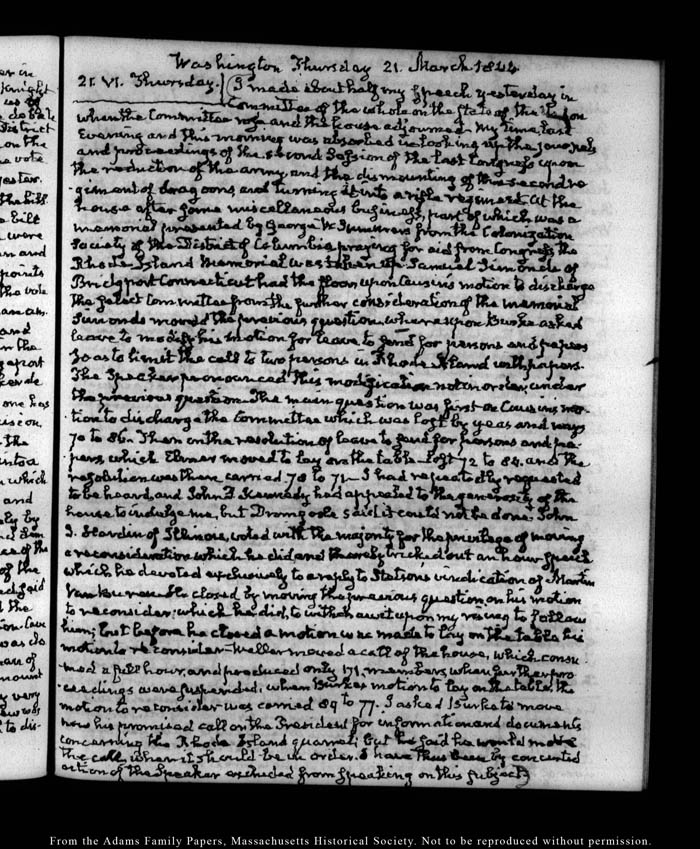 Washington Thursday 21. March 1844
21. VI. Thursday. I made about half my speech yesterday in
Committee of the whole on the state of the Union
when the Committee rose and the house adjourned. My time last
Evening and this morning was absorbed in looking up the journals
and proceedings of the second Session of the last Congress upon
the reduction of the army, and the dismounting of the second re-
-giment of dragoons and turning it into a rifle regiment. At the
house after some miscellaneous business, part of which was a
memorial presented by George W. Summers from the Colonization
Society of the District of Columbia praying for aid from Congress, the
Rhode-Island Memorial was taken up. Samuel Simonds of
Bridgport Connecticut had the floor upon Causin's motion to discharge
the select Committee from the further consideration of the memorial
Simonds moved the previous question, whereupon Burke asked
leave to modify his motion for leave to send for persons and papers
so as to limit the call to two persons in Rhode Island with papers.
The Speaker pronounced this modification not in order, under
the previous question. The main question was first on Causins mo-
-tion to discharge the Committee which was lost by yeas and nays
70 to 86. Then on the resolution of leave to send for persons and pa-
pers, which Elmer moved to lay on the table. Lost 72 to 84. and the
resolution was then carried 78 to 71 — I had repeatedly requested
to be heard, and John P. Kennedy had appealed to the generosity of the
house to indulge me, but Dromgoole said it could not be done. John
J. Hardin of Illinois, voted with the majority for the privilege of moving
a reconsideration which he did and thereby tricked out an hour speech
which he devoted exclusively to a reply to Stetson's vindication of Martin
Van Buren. He closed by moving the previous question on his motion
to reconsider; which he did, to withdraw it upon my rising to follow
him; but before he closed a motion was made to lay on the table his
motion to reconsider — Weller moved a call of the house, which consu-
-med a full hour, and produced only 171. members, when further pro-
-ceedings were suspended, when Burke's motion to lay on the table the
motion to reconsider was carried 89 to 77. I asked Burke to move
now his promised call on the President for information and documents
concerning the Rhode Island quarrel; but he said he would move
the call, when it should be in order. I have thus been by concerted
action of the Speaker excluded from speaking on this subject.
From the Adams Family Papers, Massachusetts Historical Society. Not to be reproduced without permission.